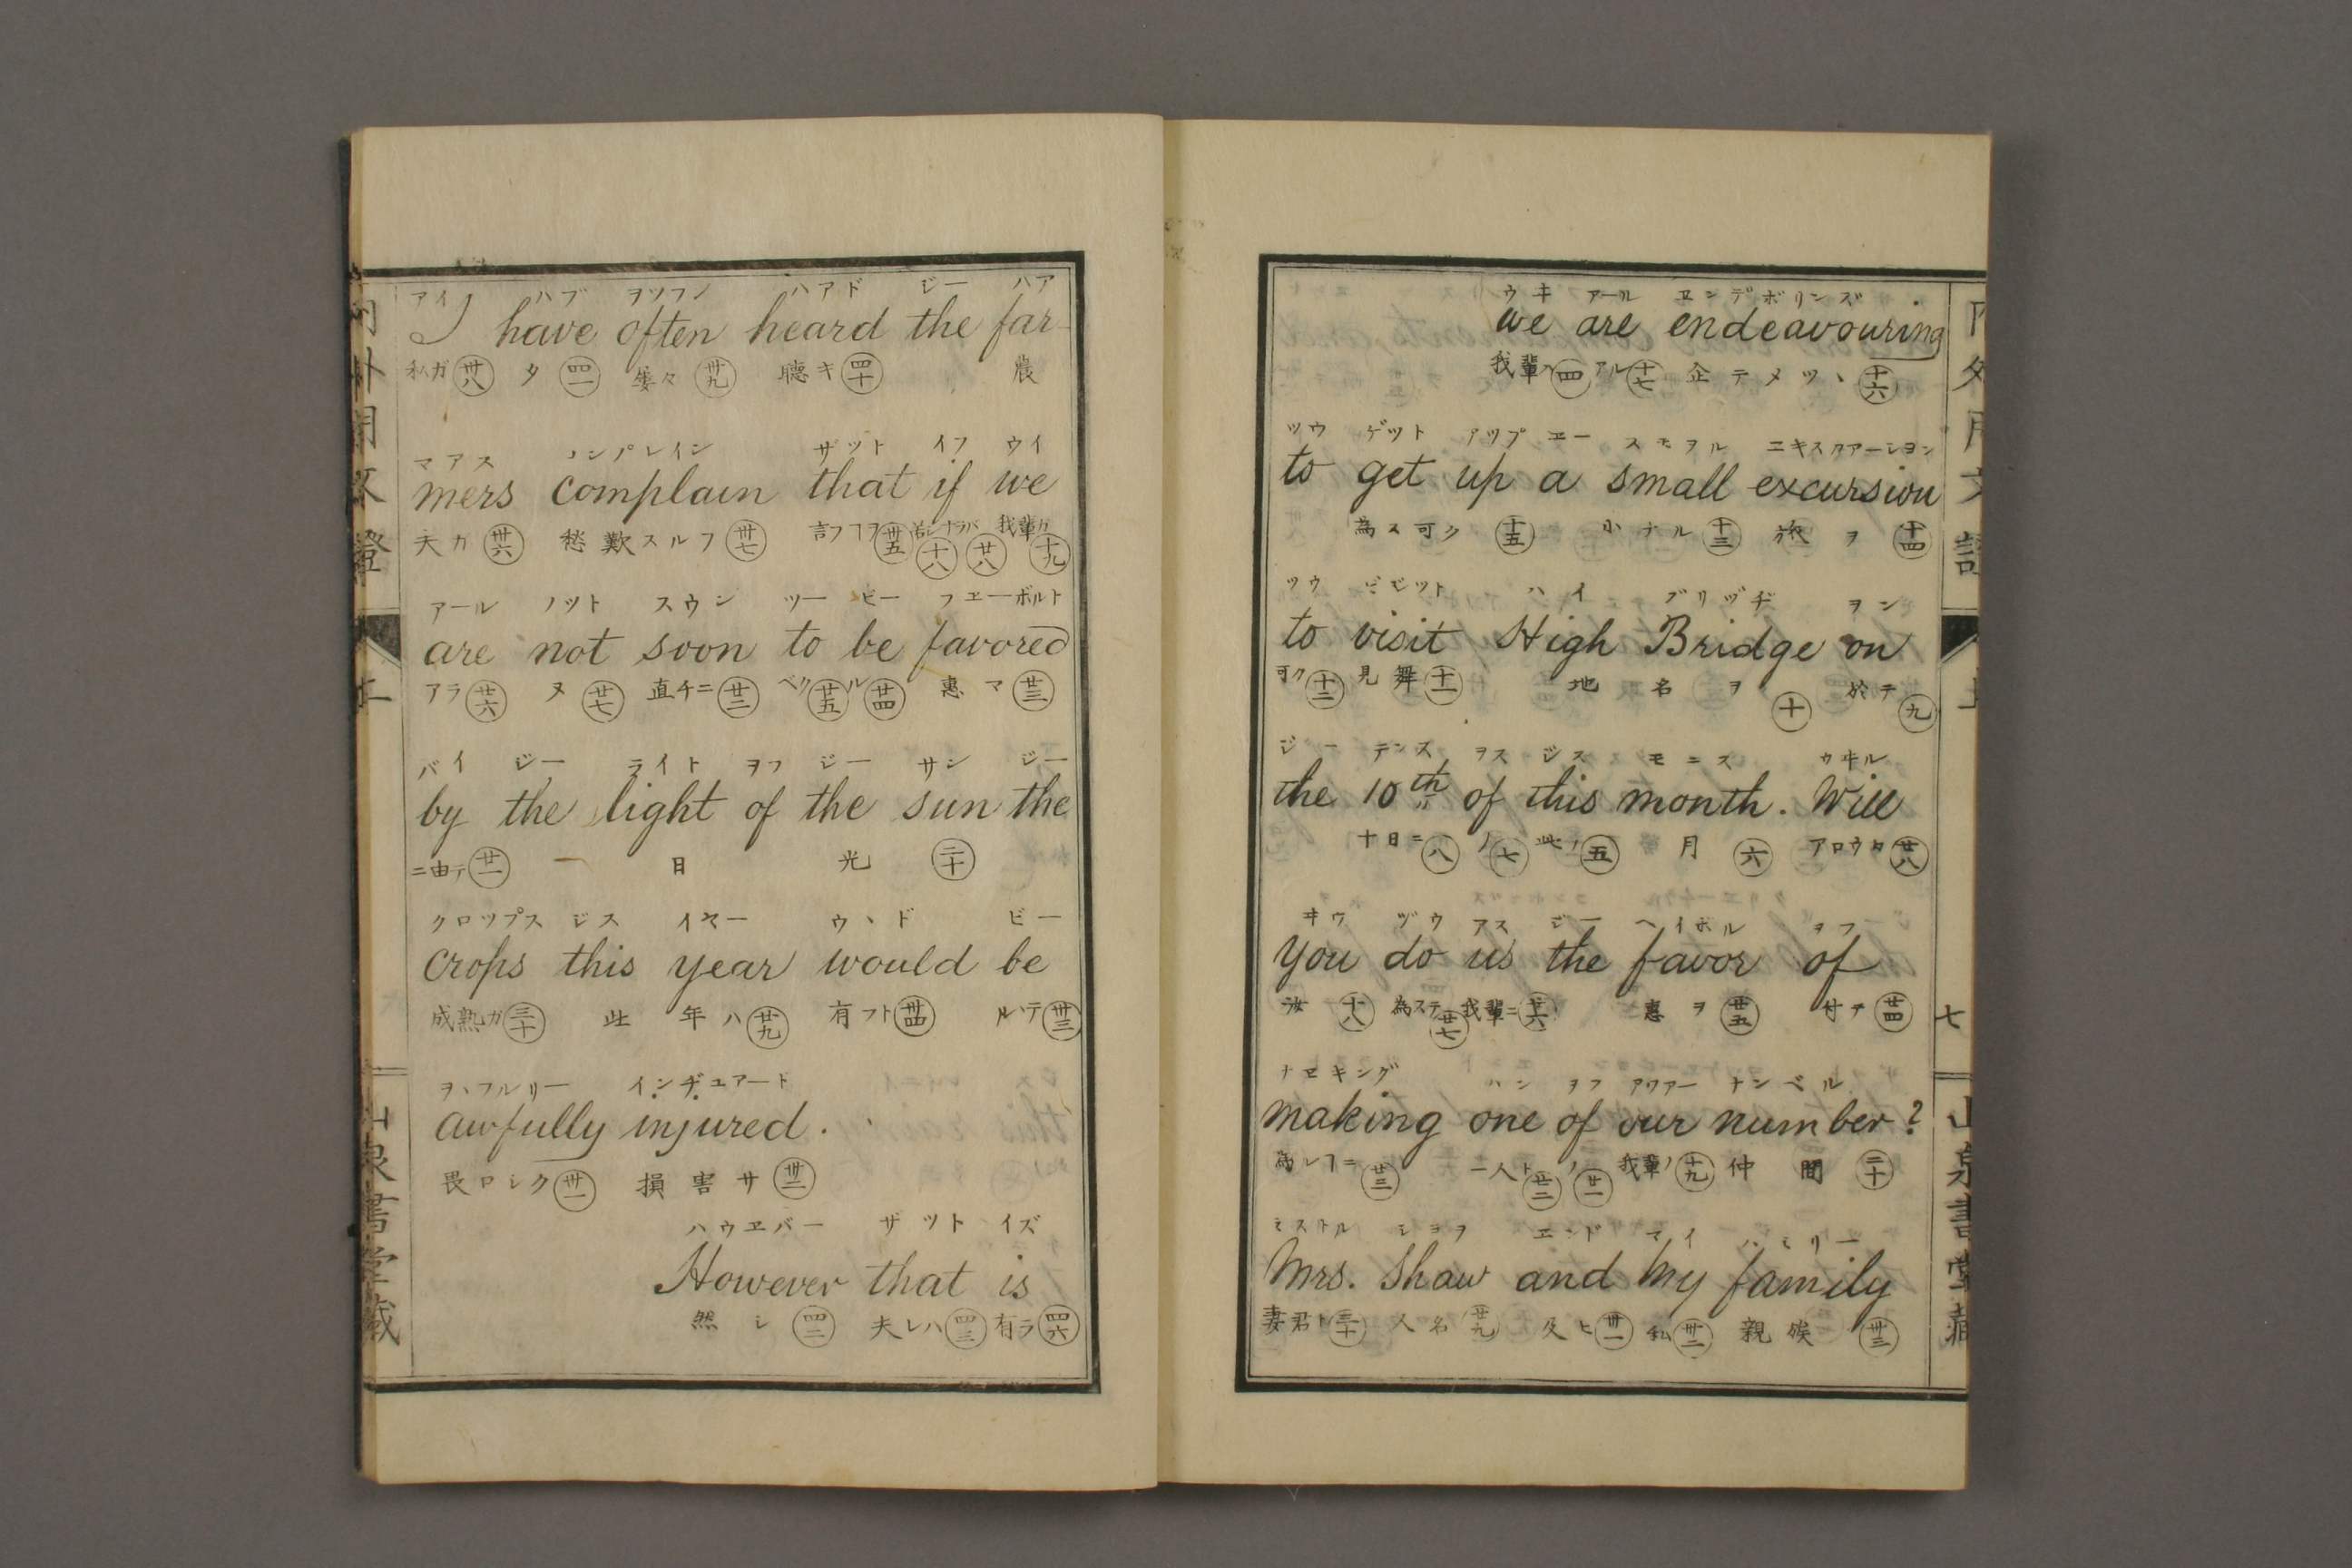 アイ ハブ ヲツフン ハアド ジー ハア
I have often heard the far-
私ガ 卅八 タ 四一 屡々 卅九 聴キ 四十 農
マアス コンプレイン ザツト イフ ウイ
mers complain that if we
夫ガ 卅六 愁歎スルフ 卅七 言フフヲ 卅五 若シ 十八 ナラバ 廿八 我輩ガ 十九
アール ノツト スウン ツー ビー フエーボルト
are not soon to be favored
アラ 廿六 ヌ 廿七 直チニ 廿二 ベク 廿五 ル 廿四 惠マ 廿三
バイ ジー ライト ヲフ ジー サン ジー
by the light of the sun the
ニ由テ 廿一 日 光 二十
クロツプス ジス イヤー ウヽド ビー
crops this year would be
成熟ガ 三十 此 年ハ 廿九 有フト 卅四 ルヽテ 卅三
ヲヽフルリー インヂユアード
awfully injured.
畏ロシク 卅一 損害サ 卅二
ハウヱバー ザツト イズ
However that is
然シ 四二 夫レハ 四三 有ラ 四六
山泉書堂蔵
内外用文証 上
ウヰ アール ヱンデボリンズ
we are endeavouring
我輩ハ 四 アル 十七 企テメツヽ 十六
ツウ ゲツト アツプ エー スモヲル エキスクアーシヨン
to get up a small excursion
為ス可ク 十五 小ナル 十三 旅ヲ 十四
ツウ ビゼツト ハイ ブリヅヂ ヲン
to visit High Bridge on
可ク 十二 見舞 十一 地名ヲ 十 於テ 九
ジー テンス ヲス ジス モニス ウヰル
the 10th of this month. Will
十日ニ 八 ノ 七 此ノ 五 月 六 アロウタ 廿八
ヰウ ヅウ アス ジー ヘイボル ヲフ
you do us the favor of
汝 十八 為ステ 廿七 我輩ニ 廿六 惠ヲ 廿五 付テ 廿四
ナエキング ハン ヲフ アワアー ナンベル
making one of our number?
為レフニ 廿三 一人ト 廿二 ノ 廿一 我輩ノ 十九 仲間 二十
ミストル シヨヲ エンド マイ ハミリー
Mrs. Shaw and my family
妻君ト 三十 人名 廿九 及ヒ 卅一 私 卅二 親族 卅三
七
山泉書堂蔵